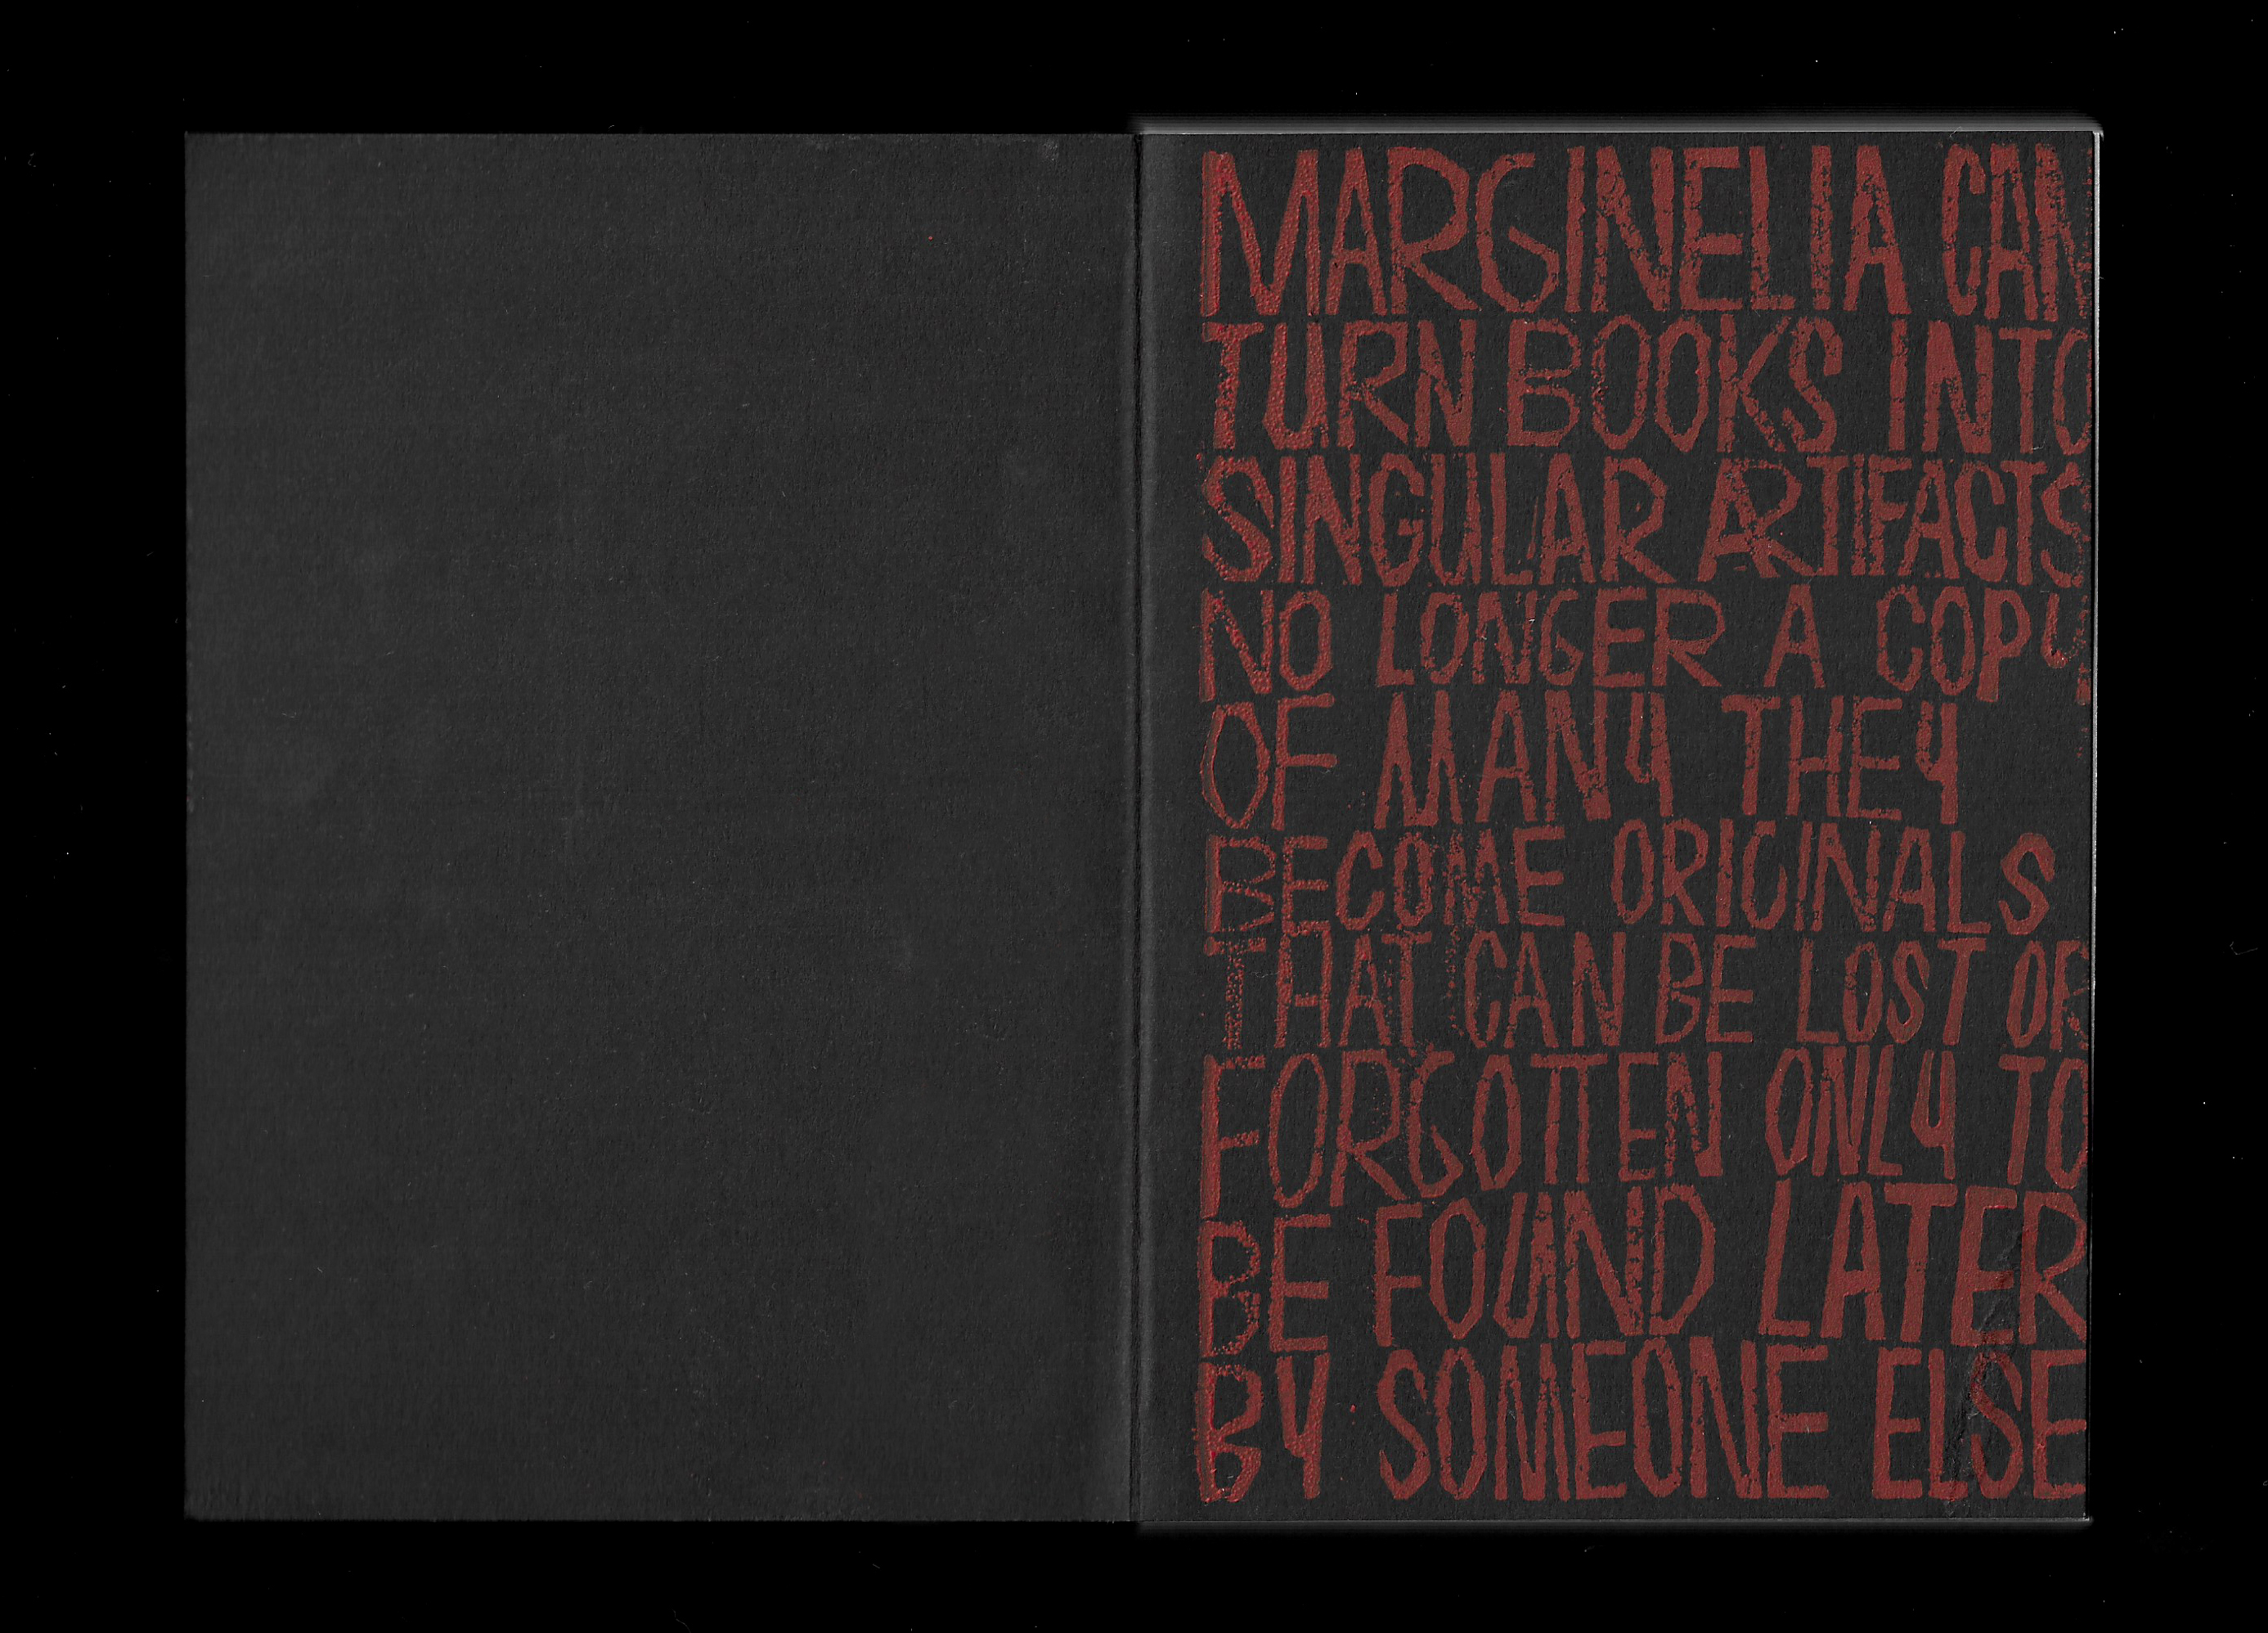 MARGINELIA CAN
TURN BOOKS INTO
SINGULAR ARTIFACTS
NO LONGER A COPY
OF MANY THEY
BECOME ORIGINALS
THAT CAN BE LOST OR
FORGOTTEN ONLY TO
BE FOUND LATER
BY SOMEONE ELSE